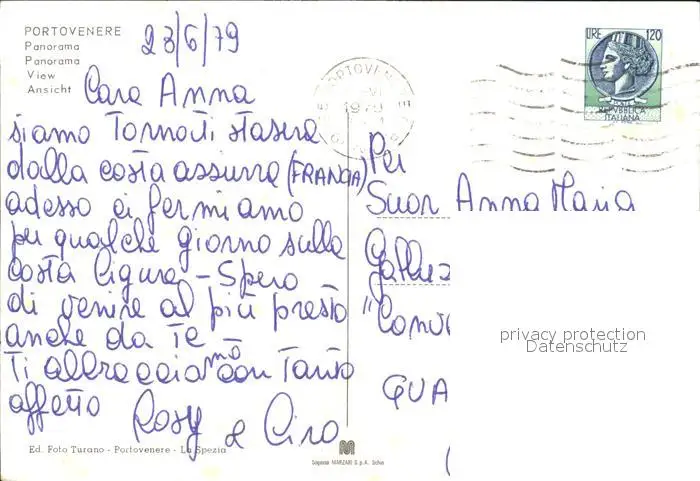 PORTOVENERE
Panorama
Panorama
View
Ansicht
23/6/79
Cara Anna
siamo tornati stasera
dalla costa azzurra (FRANCIA)
adesso ci fermiamo
per qualche giorno sulla
costa ligure - Spero
di venire al più presto
anche da te
Ti abbracciamo con tanto
affetto
Rosy e Ciro
Ed. Foto Turano - Portovenere - La Spezia
PORTOVENERE
1979
LIRE 120
REPVBBLICA
ITALIANA
Per
Suor Anna Maria
"Conv
GUA
privacy protection
Datenschutz
M